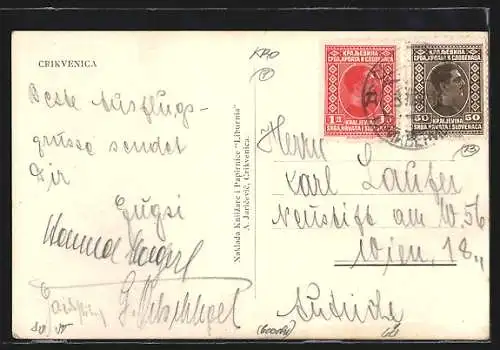 CRIKVENICA
Beste Ausflugs-
grüsse sendet
Dir
Gugsi
Naklada Knjižare i Papirnice "Liburnia"
A. Jaričević, Crikvenica.
КРАЉЕВИНА
СРБА,ХРВАТА И СЛОВЕНАЦА
1Д 1D
KRALJEVINA
SRBA, HRVATA I SLOVENACA
КРАЉЕВИНА
СРБА,ХРВАТА И СЛОВЕНАЦА
50 50
KRALJEVINA
SRBA, HRVATA I SLOVENACA
Herrn
Karl Laufer
Neustift am W. 56
Wien, 18.,
Austria